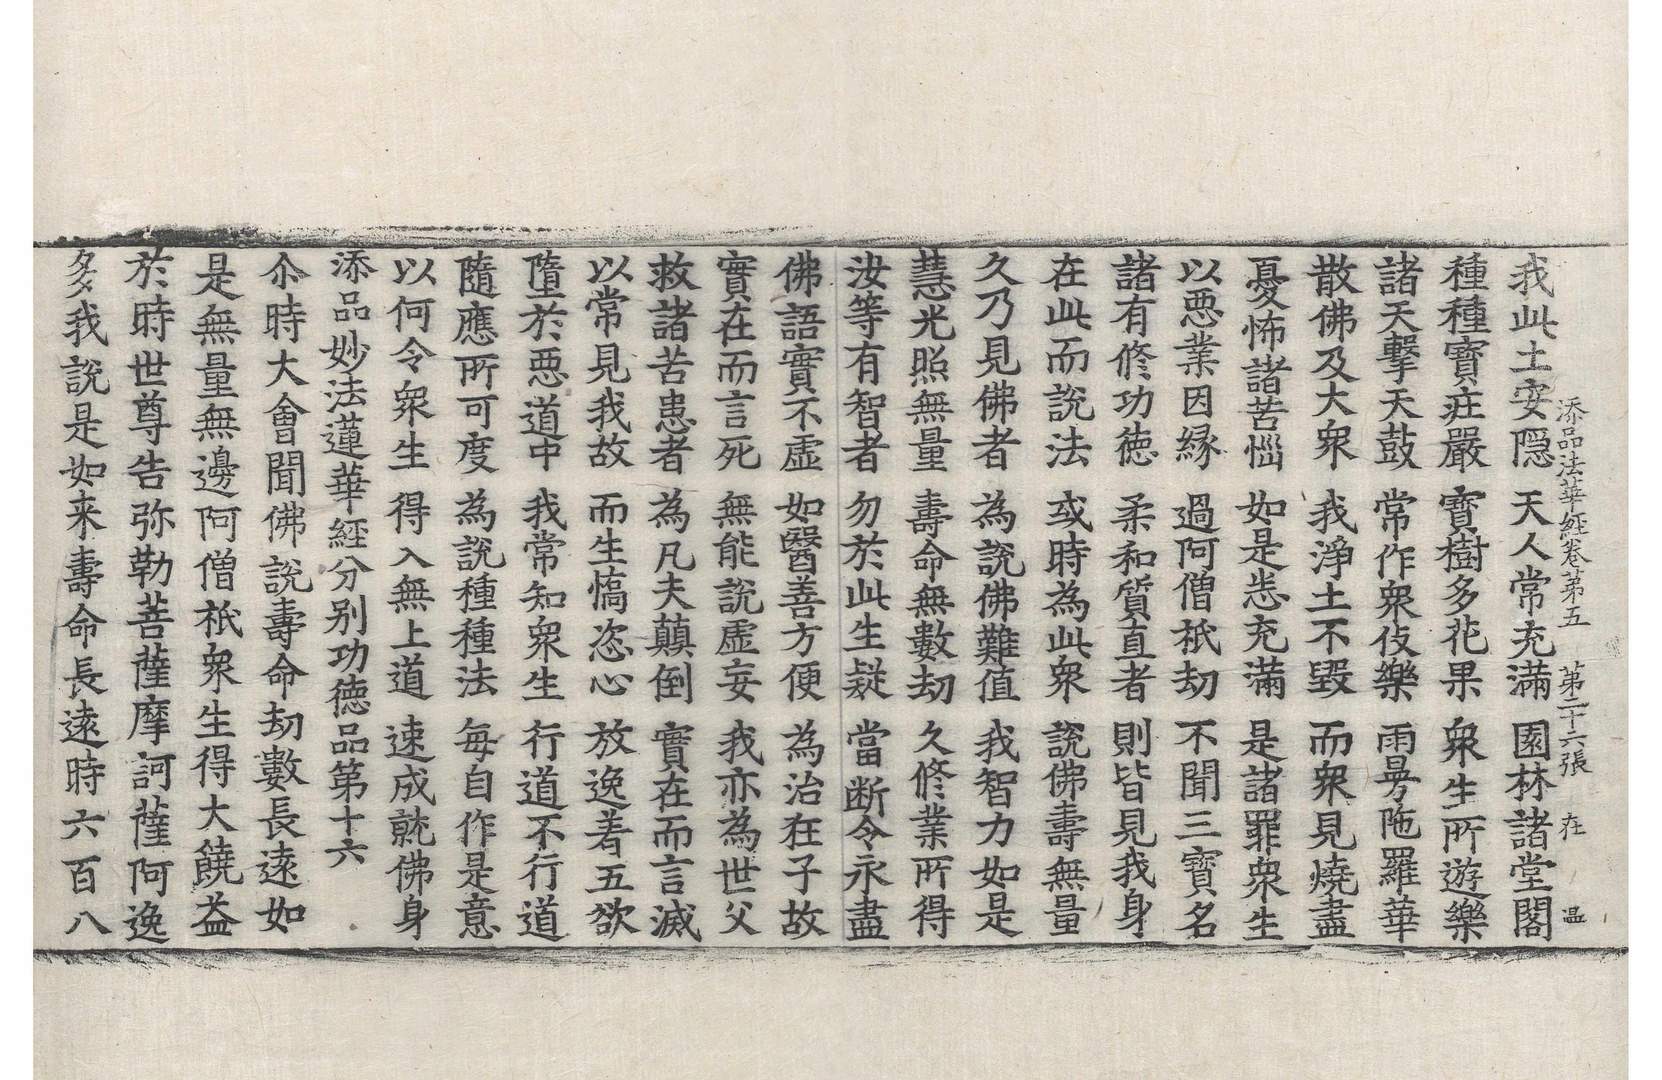 添品法華經卷第五 第二十六張 在 温
我此土安隠 天人常充滿 園林諸堂閣
種種寶莊嚴 寶樹多花果 衆生所遊樂
諸天擊天鼓 常作衆伎樂 雨曼陁羅華
散佛及大衆 我淨土不毀 而衆見燒盡
憂怖諸苦惱 如是悉充滿 是諸罪衆生
以悪業因緣 過阿僧祇劫 不聞三寶名
諸有修功徳 柔和質直者 則皆見我身
在此而説法 或時為此衆 説佛壽無量
久乃見佛者 為説佛難值 我智力如是
慧光照無量 壽命無數劫 久修業所得
汝等有智者 勿於此生疑 當断令永盡
佛語實不虛 如醫善方便 為治狂子故
實在而言死 無能説虛妄 我亦為世父
救諸苦患者 為凡夫顛倒 實在而言滅
以常見我故 而生憍恣心 放逸著五欲
墮於悪道中 我常知衆生 行道不行道
隨應所可度 為説種種法 每自作是意
以何令衆生 得入無上道 速成就佛身
添品妙法蓮華經分别功徳品第十六
尒時大會聞佛説壽命劫數長遠如
是無量無邊阿僧祇衆生得大饒益
於時世尊告弥勒菩薩摩訶薩阿逸
多我説是如来壽命長遠時六百八